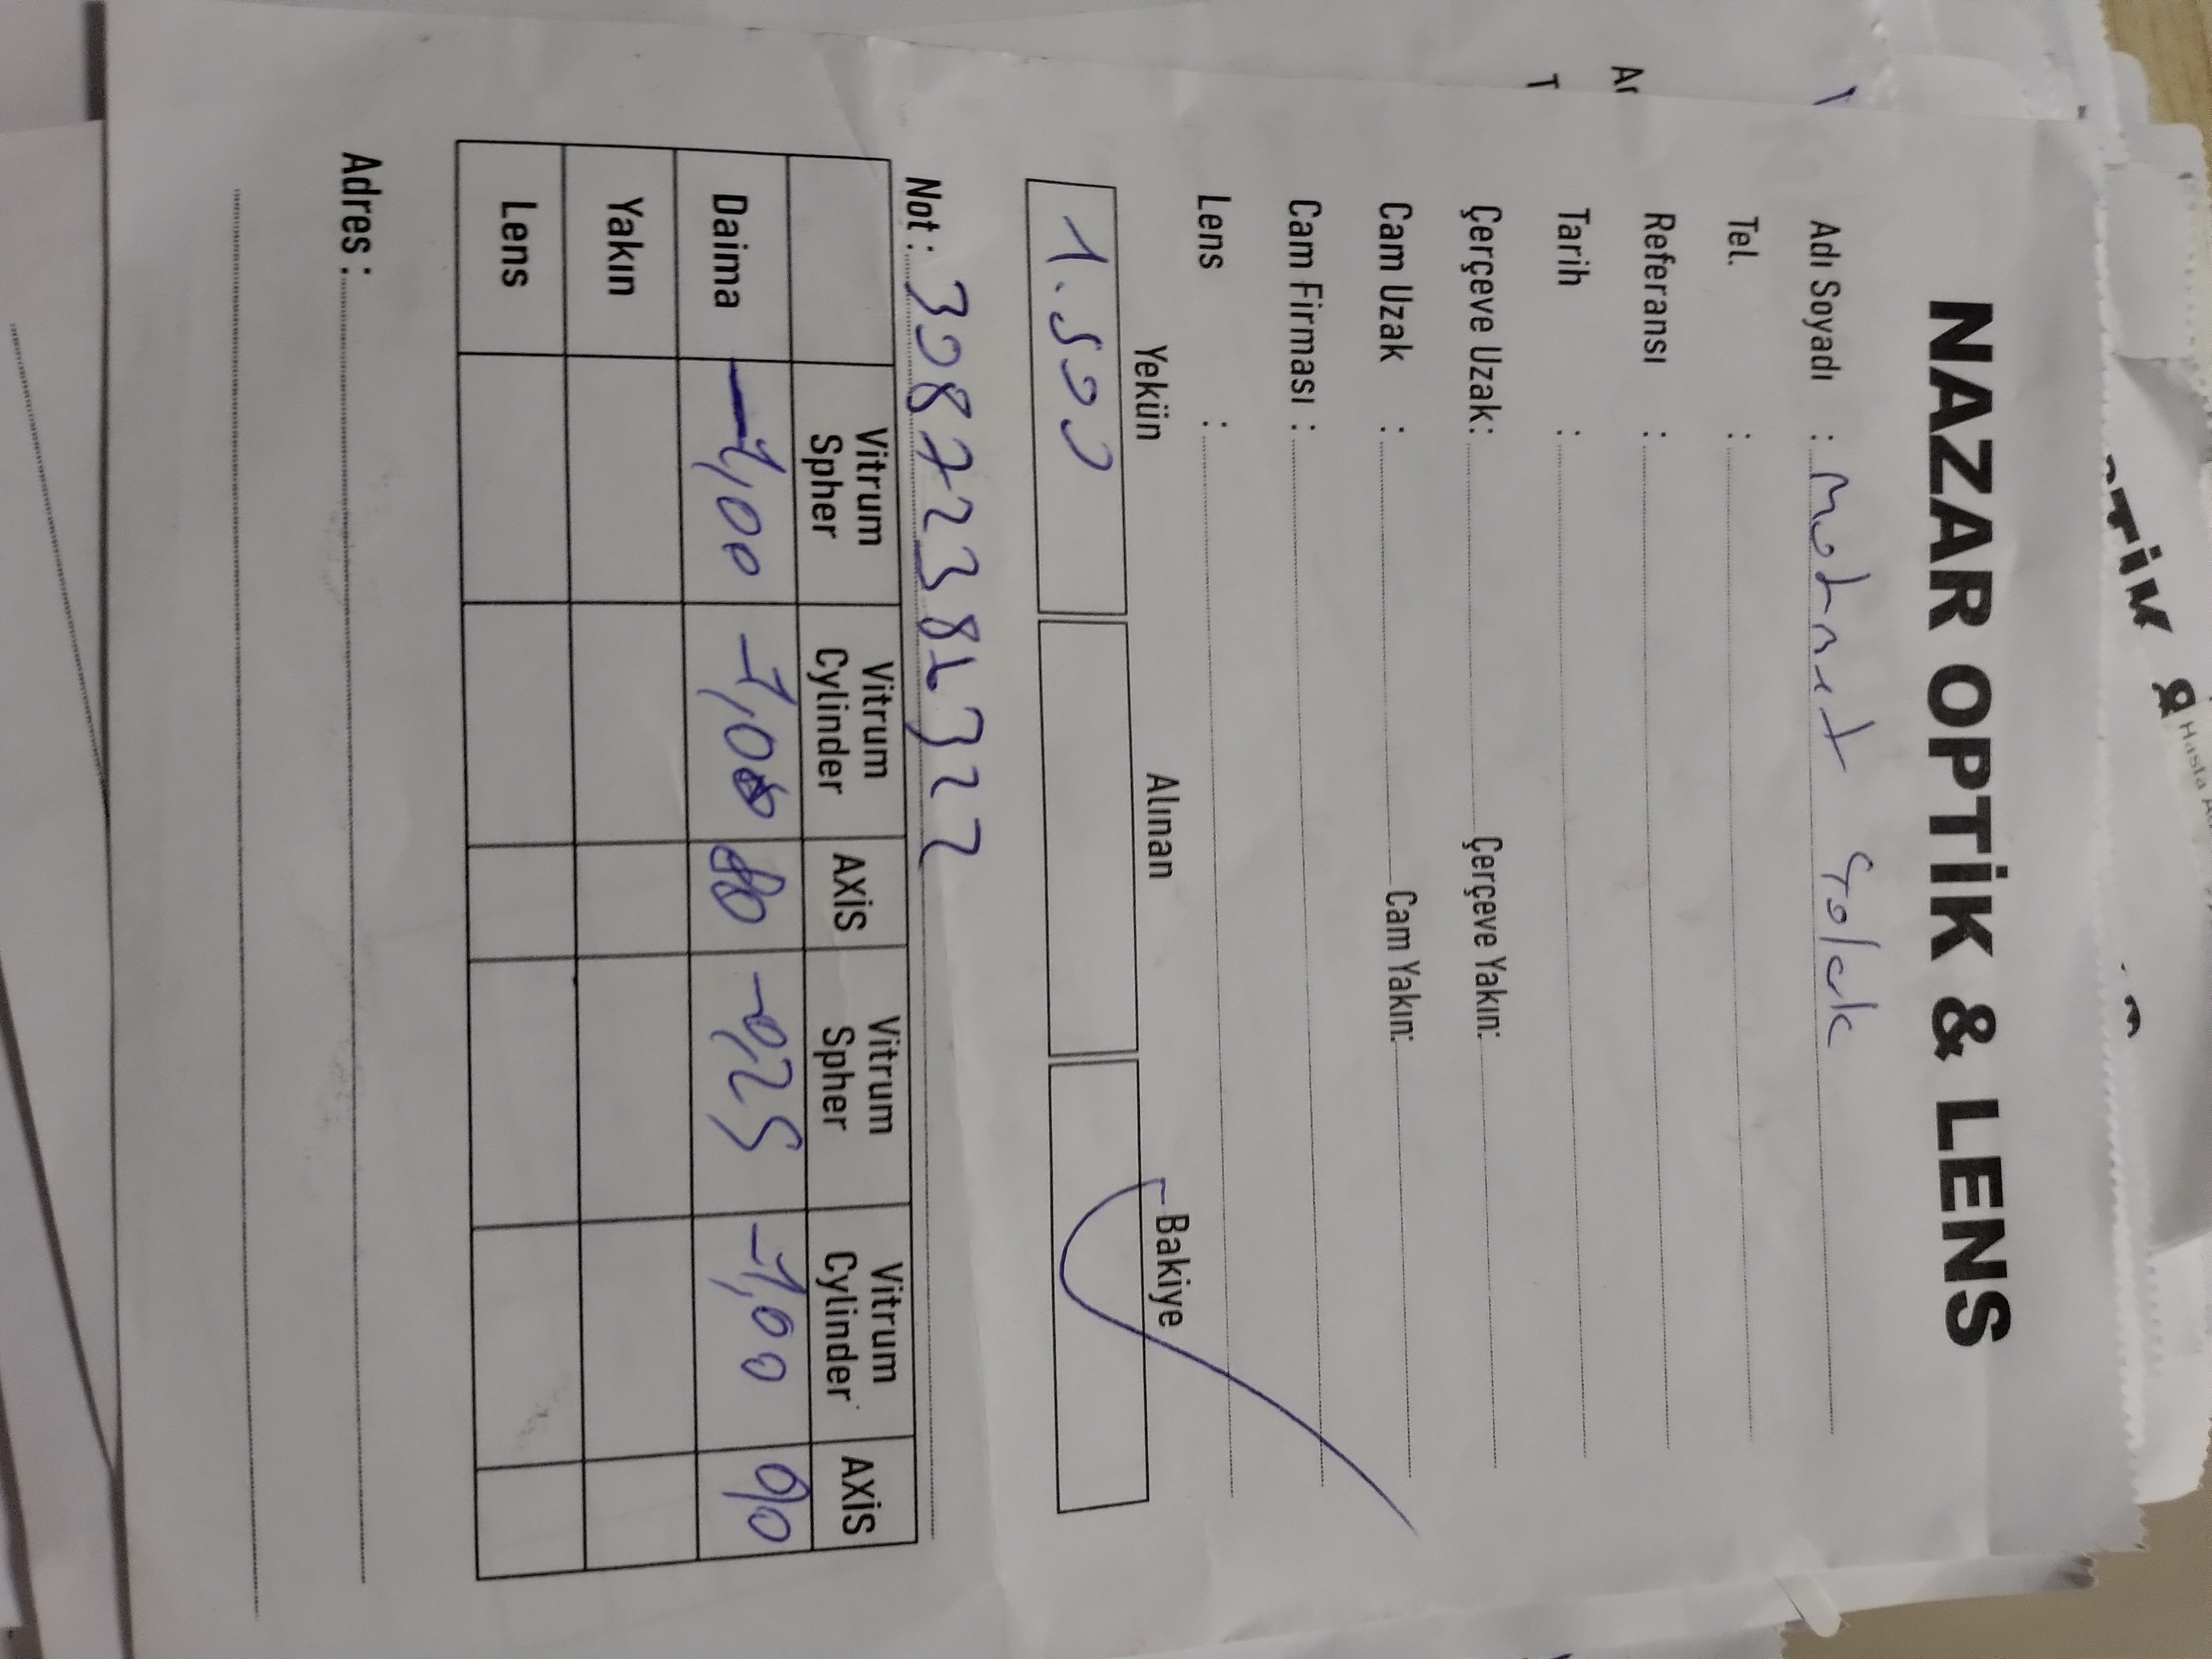 NAZAR OPTİK & LENS
Adı Soyadı : Mehmet Çolak
Tel. :
Referansı :
Tarih :
Çerçeve Uzak: Çerçeve Yakın:
Cam Uzak : Cam Yakın:
Cam Firması :
Lens :
Yekün Alınan Bakiye
1.500
Not :
Vitrum Spher Vitrum Cylinder AXİS Vitrum Spher Vitrum Cylinder AXİS
Daima -1,00 -1,00 80 -0,25 -1,00 90
Yakın
Lens
Adres :